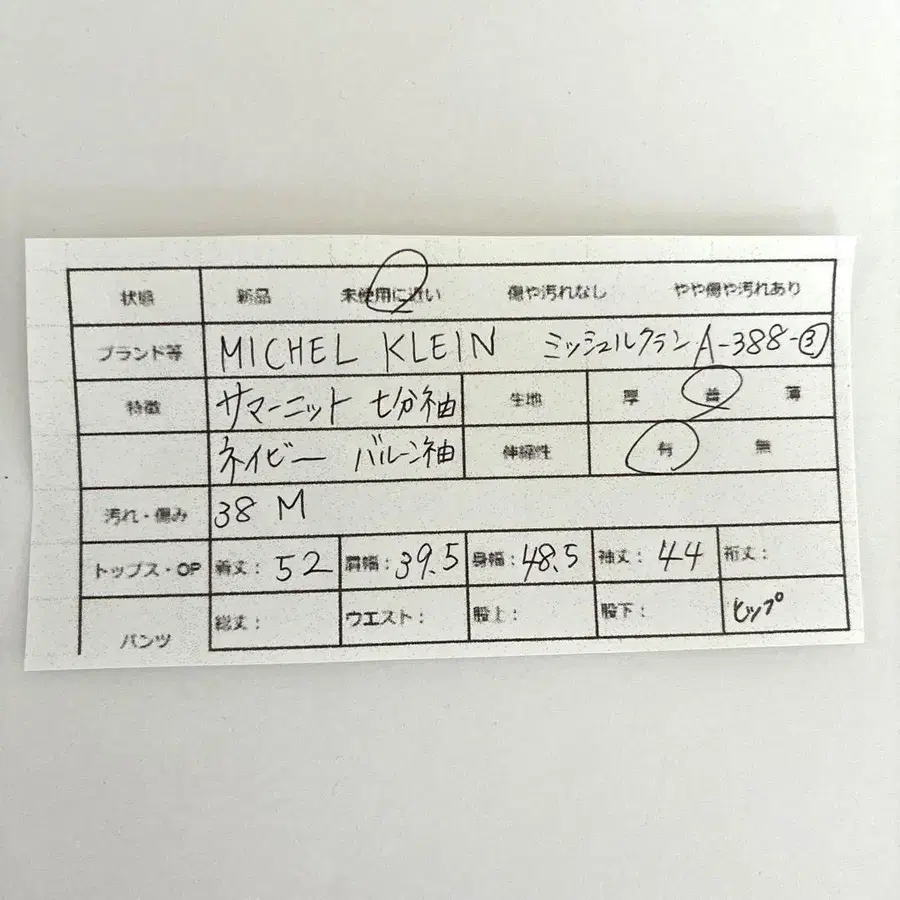 状態 新品 未使用に近い 傷や汚れなし やや傷や汚れあり
ブランド等 MICHEL KLEIN ミッシェルクラン A-388-③
特徴 サマーニット 七分袖 生地 厚 普 薄
ネイビー バルーン袖 伸縮性 有 無
汚れ・傷み 38 M
トップス・OP 着丈: 52 肩幅: 39.5 身幅: 48.5 袖丈: 44 裄丈:
パンツ 総丈: ウエスト: 股上: 股下: ヒップ